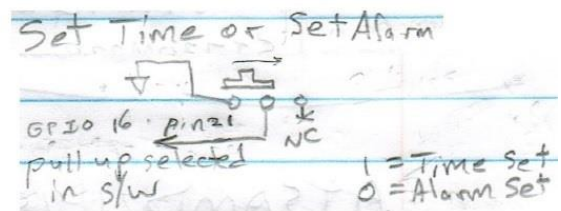 Set Time or Set Alarm
GPIO 16 pin21
NC
pull up selected
in s/w
1 = Time Set
0 = Alarm Set